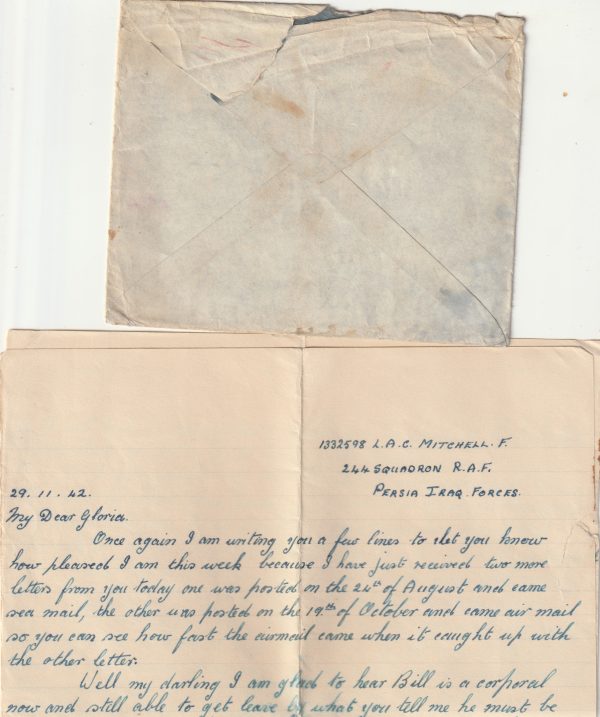 1332598 L.A.C. MITCHELL. F.
244 SQUADRON R.A.F.
PERSIA IRAQ FORCES.
29. 11. 42.
My Dear Gloria.
Once again I am writing you a few lines to let you know
how pleased I am this week because I have just received two more
letters from you today one was posted on the 24th of August and came
sea mail, the other was posted on the 19th of October and came air mail
so you can see how fast the airmail came when it caught up with
the other letter.
Well my darling I am glad to hear Bill is a corporal
now and still able to get leave by what you tell me he must be